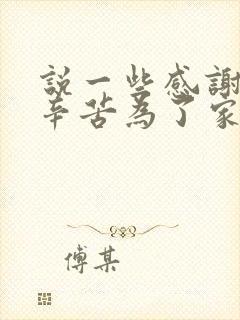 說一些感謝
辛苦為了家
傅某